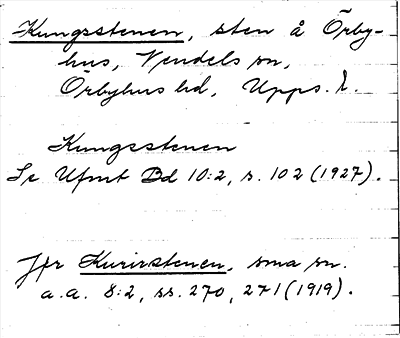 Kungsstenen, sten å Örby-
hus, Vendels sn,
Örbyhus hd, Upps. l.
Kungsstenen
Se Ufmt Bd 10:2, s. 102 (1927).
Jfr Kurirstenen, sma sn.
a.a. 8:2, ss. 270, 271 (1919).